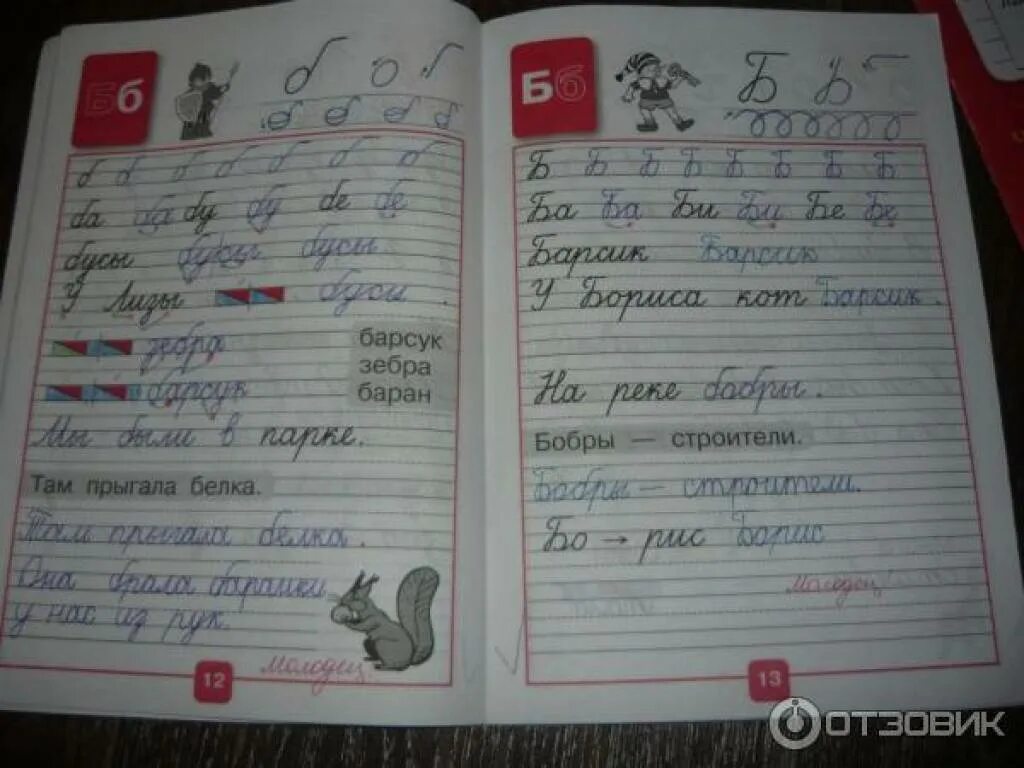 Бб
б о г
б б б б б б б
ба ба бу бу бе бе
бусы бусы бусы
У Лизы бусы.
зебра
барсук
барсук
зебра
баран
Мы были в парке.
Там прыгала белка.
Там прыгала белка.
Она брала баранки
у нас из рук.
Молодец
12
Бб
Б
Б Б Б Б Б Б Б Б
Ба Ба Би Би Бе Бе
Барсик Барсик
У Бориса кот Барсик.
На реке бобры.
Бобры — строители.
Бобры — строители.
Бо → рис Борис
Молодец
13
ОТЗОВИК